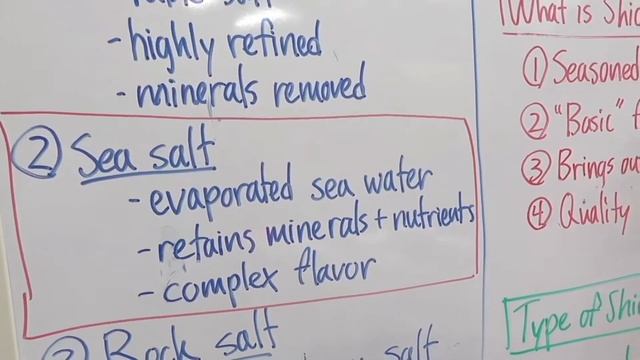 salt
- highly refined
- minerals removed
② Sea salt
- evaporated sea water
- retains minerals + nutrients
- complex flavor
Rock salt
salt
What is
① Seasoned
② "Basic"
③ Brings
④ Quality
Type of